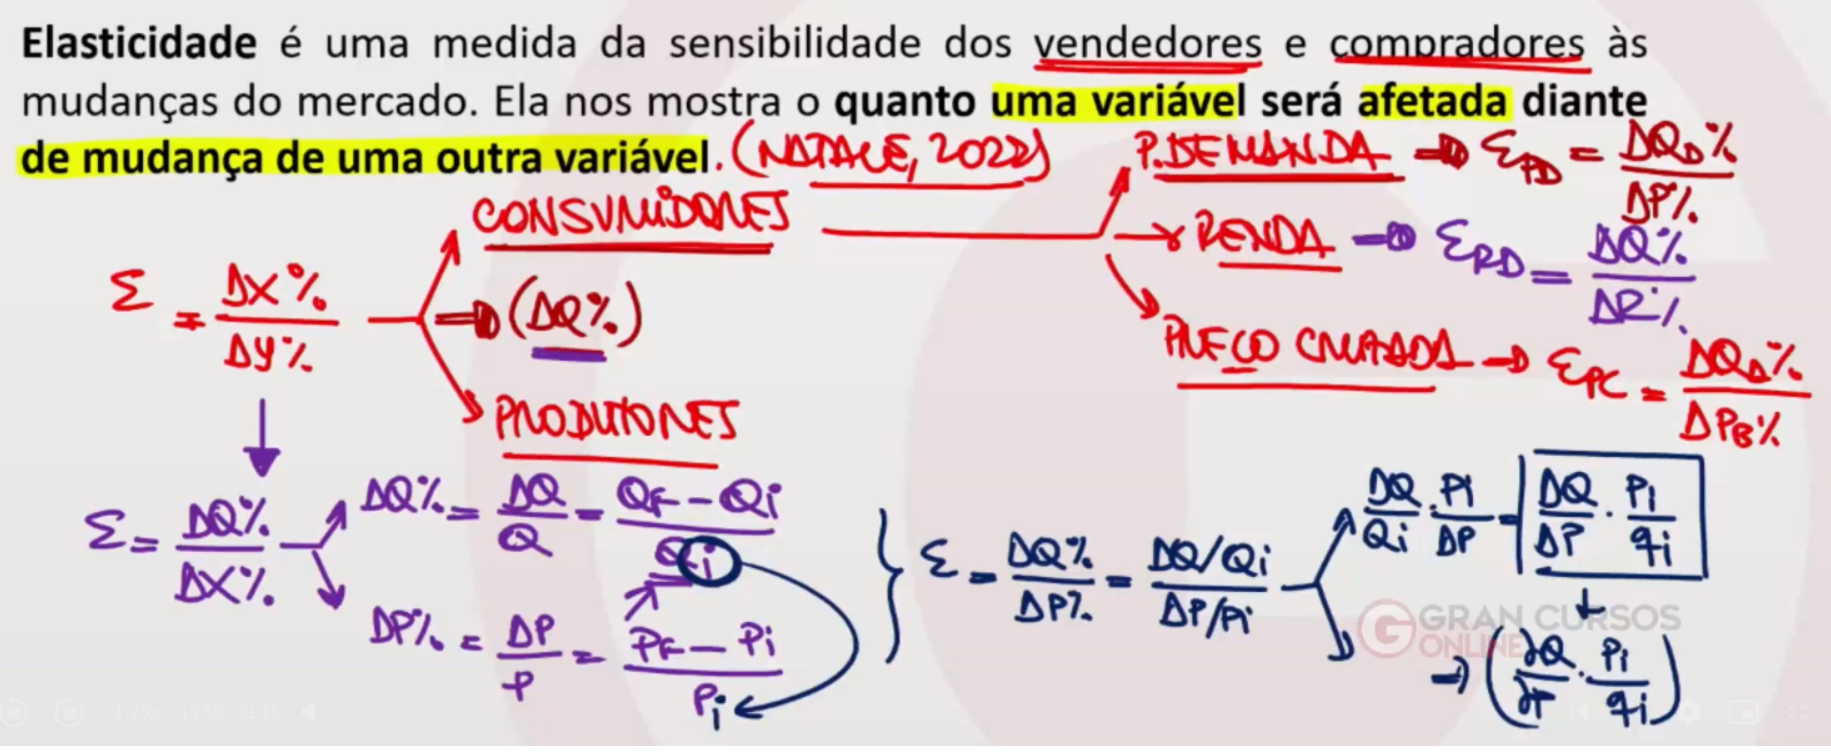 Elasticidade é uma medida da sensibilidade dos vendedores e compradores às
mudanças do mercado. Ela nos mostra o quanto uma variável será afetada diante
de mudança de uma outra variável. (NATALE, 2022)
P.DEMANDA → ε_PD = ΔQ_D% / ΔP%
CONSUMIDORES
→ RENDA → ε_RD = ΔQ% / ΔR%
Σ = ΔX% / ΔY%
→ (ΔQ%)
PREÇO CRUZADA → ε_PC = ΔQ_A% / ΔP_B%
PRODUTORES
Σ = ΔQ% / ΔX%
ΔQ% = ΔQ / Q = QF - Qi / Qi
ΔP% = ΔP / P = PF - Pi / Pi
ε = ΔQ% / ΔP% = ΔQ/Qi / ΔP/Pi
ΔQ / Qi · Pi / ΔP = ΔQ / ΔP · Pi / qi
→ (∂Q / ∂P · Pi / qi)
GRAN CURSOS
ONLINE
1.25x 13:50 / 31:15